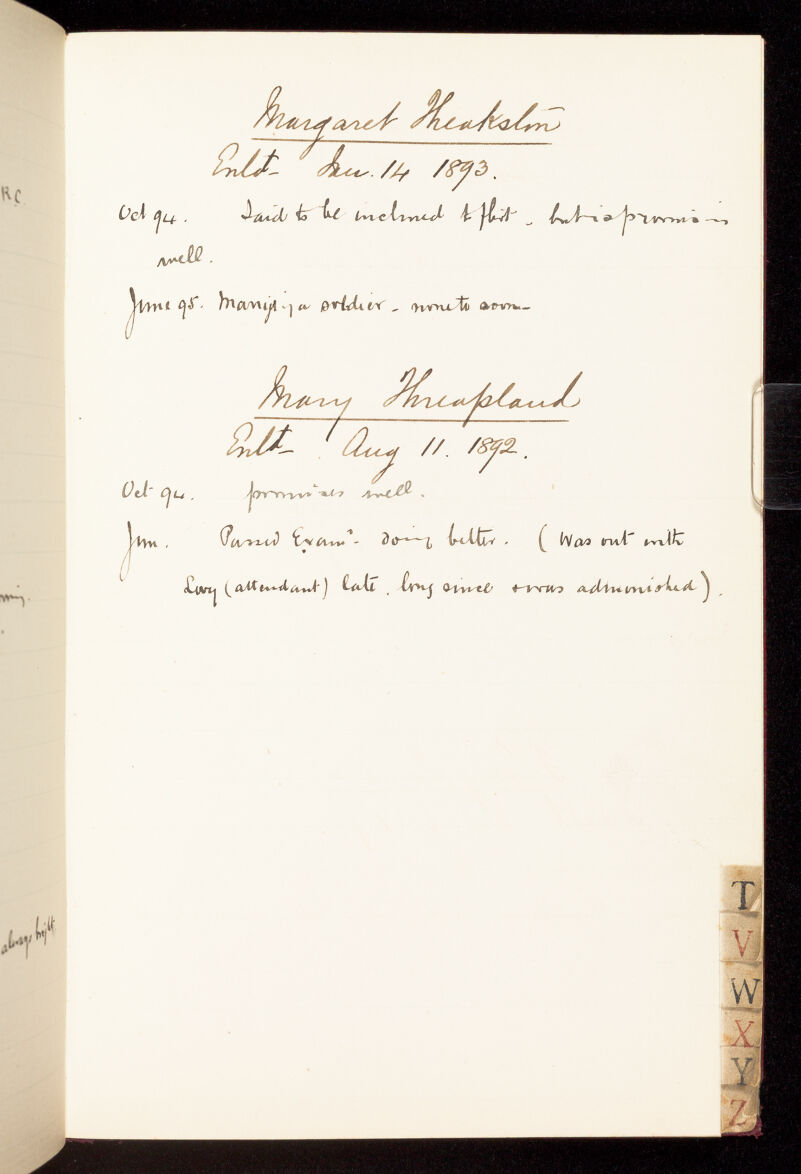 R C.
always bright.
Margaret Theakston
Enlt- Jan. 14 1893.
Oct 94. Said to be inclined to flirt - but is promising
well.
June 95. Marrying a soldier - none to soon -
Mary Threapland
Enlt- Aug 11. 1892.
Oct 94. promises well.
Jun. Passed Examn - doing better. (Was out with
Levy (attendant) late, long since & was admonished).
T
V
W
X
Y
Z